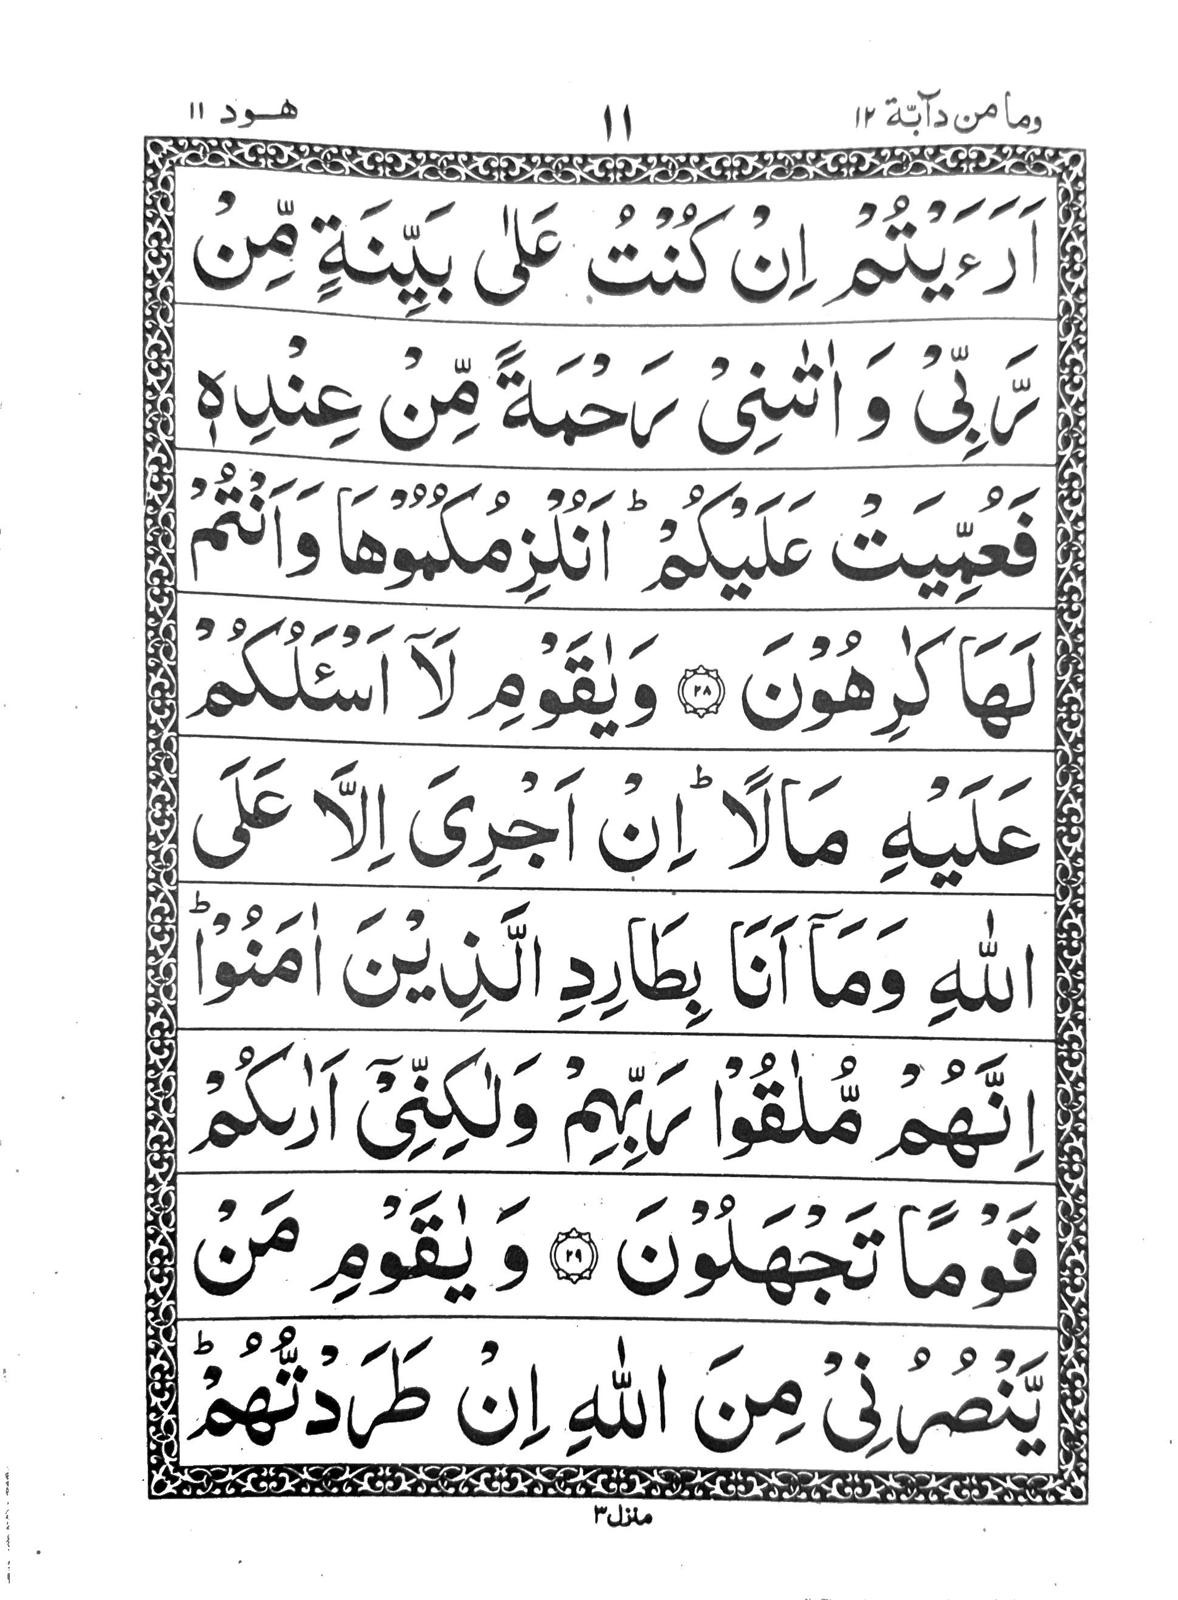 وما من دآبّة ۱۲ ۱۱ هود ۱۱
اَرَءَيْتُمْ اِنْ كُنْتُ عَلٰى بَيِّنَةٍ مِّنْ
رَّبِّىْ وَ اٰتٰىنِىْ رَحْمَةً مِّنْ عِنْدِهٖ
فَعُمِّيَتْ عَلَيْكُمْ ؕ اَنُلْزِمُكُمُوْهَا وَ اَنْتُمْ
لَهَا كٰرِهُوْنَ ﴿۲۸﴾ وَ يٰقَوْمِ لَاۤ اَسْئَلُكُمْ
عَلَيْهِ مَالًا ؕ اِنْ اَجْرِىَ اِلَّا عَلَى
اللّٰهِ وَمَاۤ اَنَا بِطَارِدِ الَّذِيْنَ اٰمَنُوْا ؕ
اِنَّهُمْ مُّلٰقُوْا رَبِّهِمْ وَلٰكِنِّىْۤ اَرٰىكُمْ
قَوْمًا تَجْهَلُوْنَ ﴿۲۹﴾ وَ يٰقَوْمِ مَنْ
يَّنْصُرُنِىْ مِنَ اللّٰهِ اِنْ طَرَدْتُّهُمْ ؕ
منزل ۳